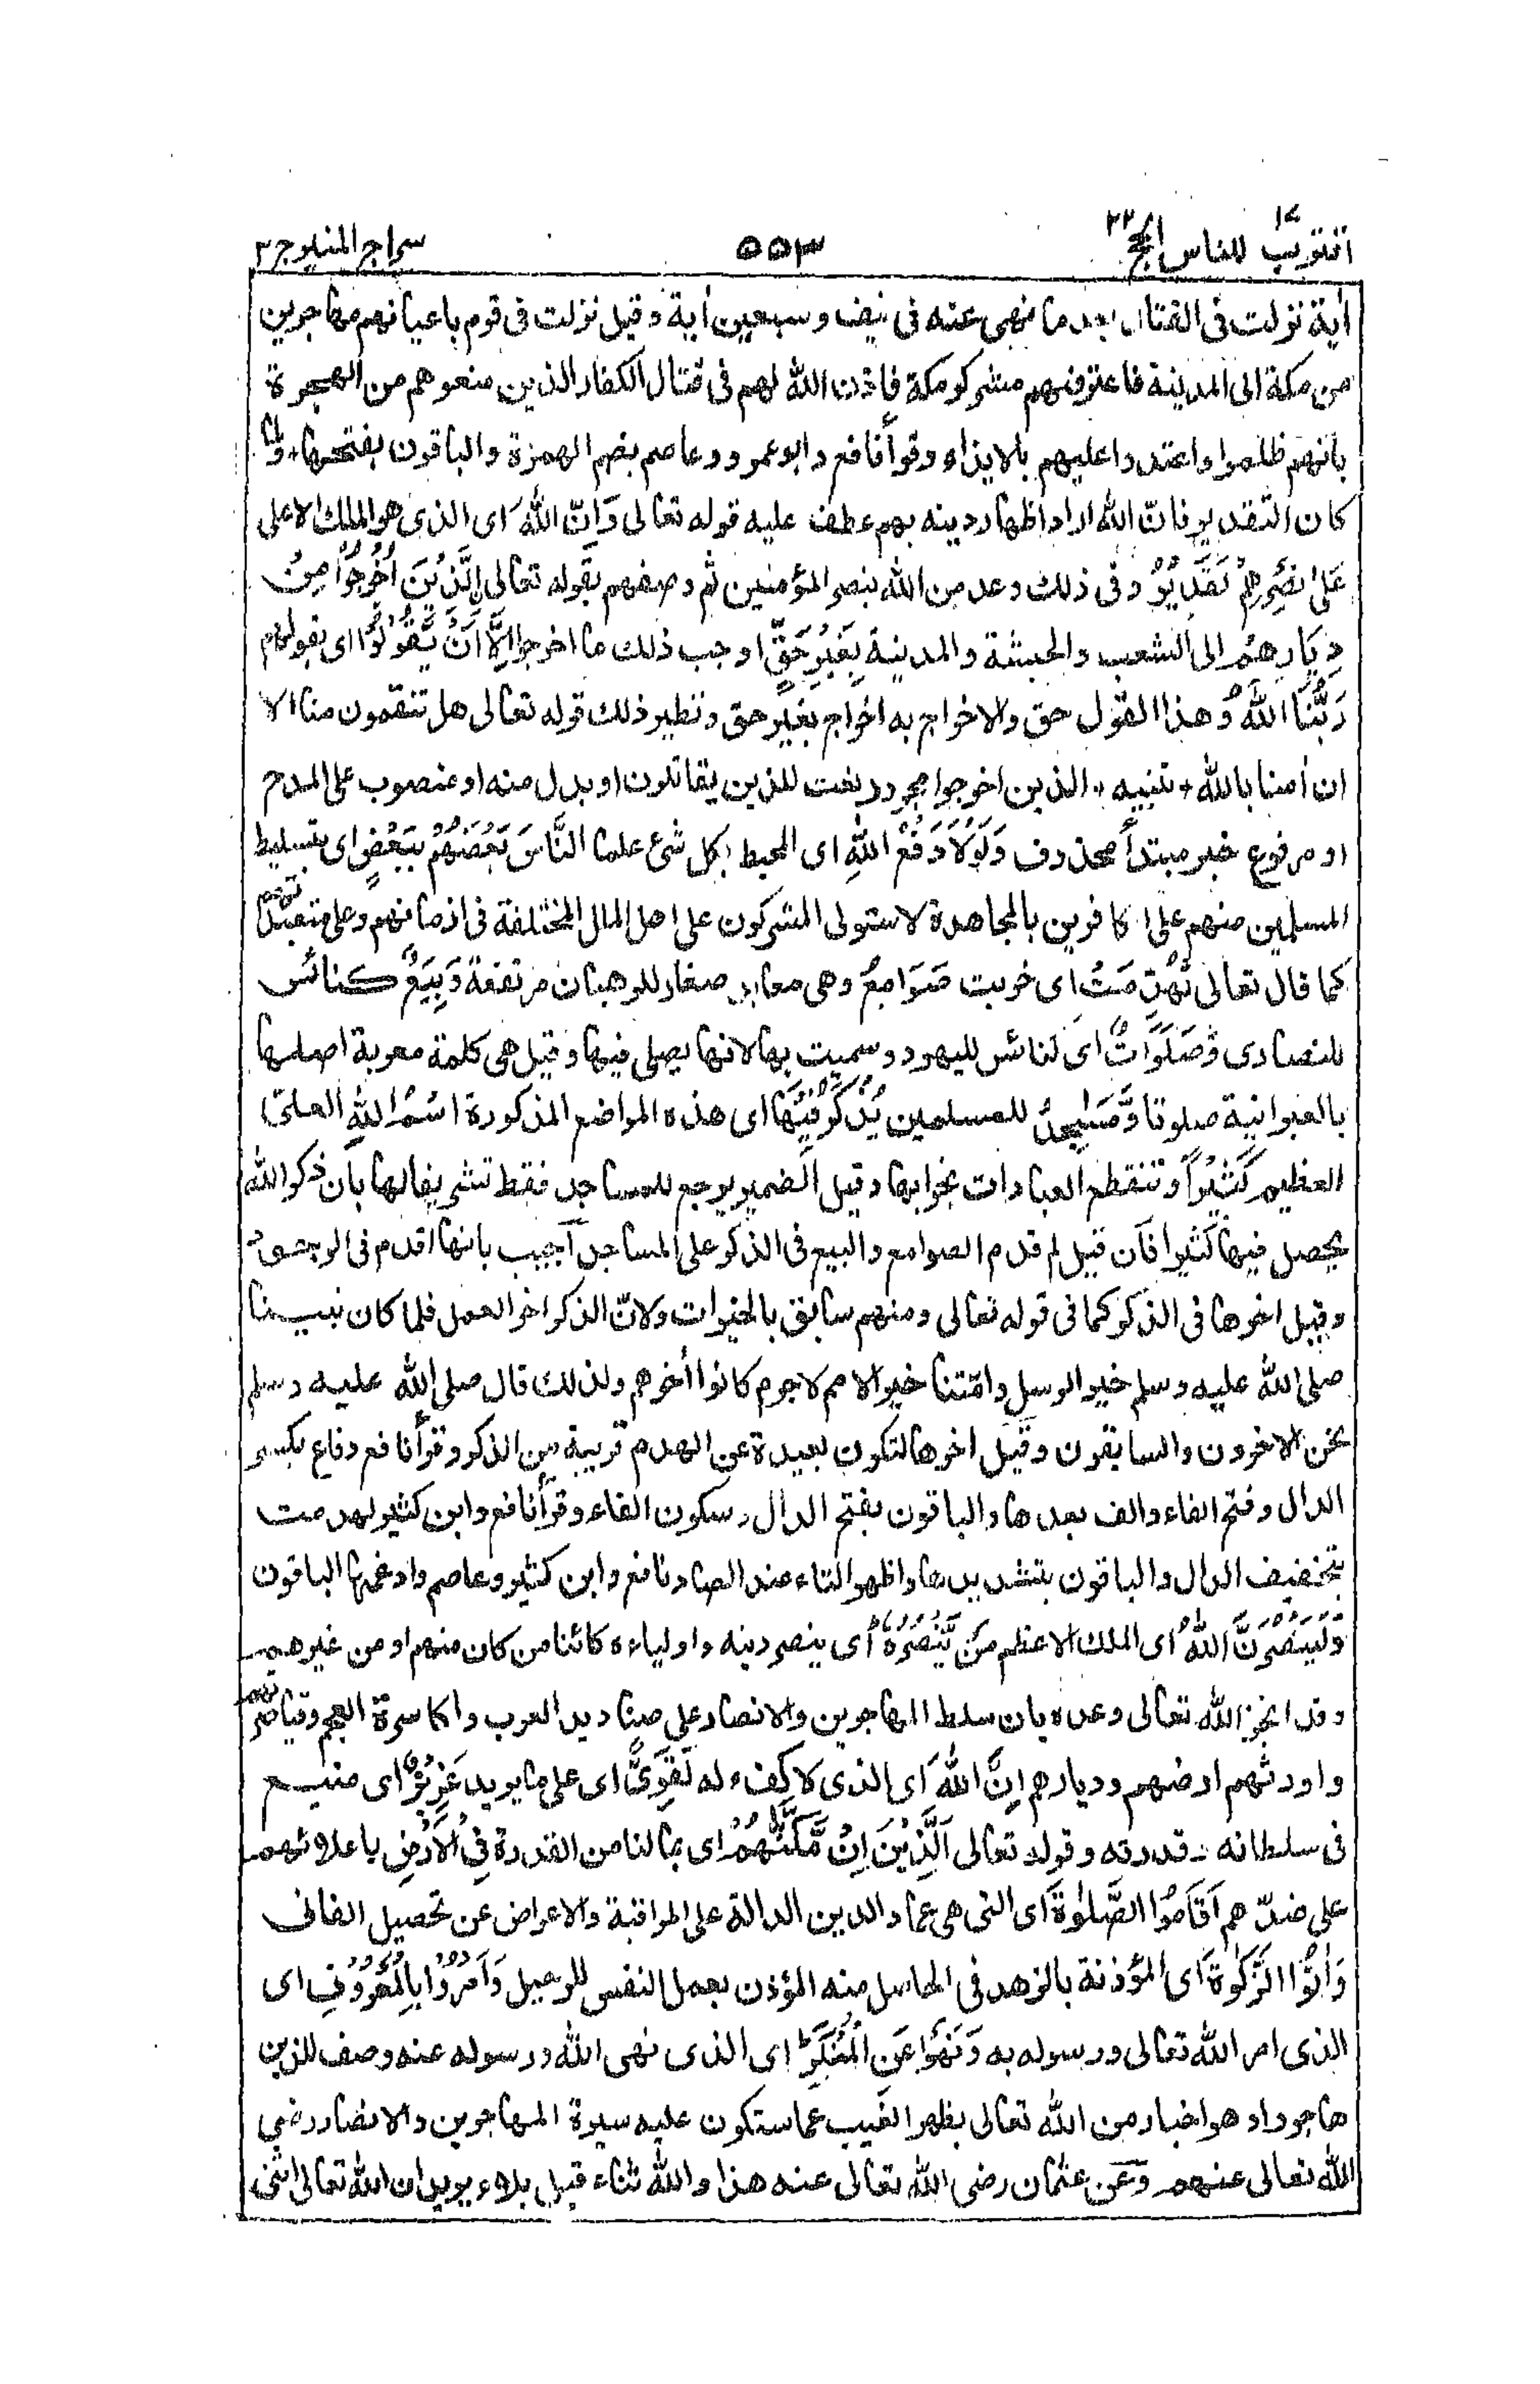 اقترب للناس ١٧ الحج ٢٢
٥٥٣
سراج المنير ج ٣
اٰية نزلت فى القتال بعد ما نهى عنه فى نيف وسبعين اٰية وقيل نزلت فى قوم باعيانهم مهاجرين
من مكة الى المدينة فاعترضهم مشركو مكة فاذن الله لهم فى قتال الكفار الذين منعوهم من الهجرة
بانهم ظلموا واعتدوا عليهم بالايذاء وقرأ نافع وابو عمرو وعاصم بضم الهمزة والباقون بفتحها ولما
كان التقدير فانّ الله اراد اظهار دينه بهم عطف عليه قوله تعالى وَاِنَّ اللّٰهَ اى الذى هو الملك الاعلى
عَلٰى نَصْرِهِمْ لَقَدِيْرٌ وفى ذلك وعد من الله بنصر المؤمنين ثم وصفهم بقوله تعالى الَّذِيْنَ اُخْرِجُوْا مِنْ
دِيَارِهِمْ الى الشعب والحبشة والمدينة بِغَيْرِ حَقٍّ اوجب ذلك ما اخرجوا اِلَّا اَنْ يَّقُوْلُوْا اى بقولهم
رَبُّنَا اللّٰهُ وهذا القول حق والاخراج به اخراج بغير حق ونظير ذلك قوله تعالى هل تنقمون منا الا
ان اٰمنا بالله + تنبيه + الذين اخرجوا مجرور نعت للذين يقاتلون او بدل منه او منصوب على المدح
او مرفوع خبر مبتدأ محذوف وَلَوْلَا دَفْعُ اللّٰهِ اى المحيط بكل شئ علما النَّاسَ بَعْضَهُمْ بِبَعْضٍ اى بتسليط
المسلمين منهم على الكافرين بالمجاهدة لاستولى المشركون على اهل الملل المختلفة فى ازمانهم وعلى متعبداتهم
كما قال تعالى لَّهُدِّمَتْ اى خربت صَوَامِعُ وهى معابد صغار للرهبان مرتفعة وَبِيَعٌ كنائس
للنصارى وَّصَلَوَاتٌ اى كنائس لليهود وسميت بها لانها يصلى فيها وقيل هى كلمة معربة اصلها
بالعبرانية صلوتا وَّمَسٰجِدُ للمسلمين يُذْكَرُ فِيْهَا اى هذه المواضع المذكورة اسْمُ اللّٰهِ العلىّ
العظيم كَثِيْرًا وتنقطع العبادات بخرابها وقيل الضمير يرجع للمساجد فقط تشريفا لها بان ذكر الله
يحصل فيها كثيرا فان قيل لم قدم الصوامع والبيع فى الذكر على المساجد اجيب بانها اقدم فى الوجود
وقيل اخرها فى الذكر كما فى قوله تعالى ومنهم سابق بالخيرات ولانّ الذكر اخر العمل فلما كان نبينا
صلى الله عليه وسلم خير الرسل وامّتنا خير الامم لا جرم كانوا اٰخرهم ولذلك قال صلى الله عليه وسلم
نحن الاخرون والسابقون وقيل اخرها لتكون بعيدة عن الهدم قريبة من الذكر وقرأ نافع دفاع بكسر
الدال وفتح الفاء والف بعدها والباقون بفتح الدال وسكون الفاء وقرأ نافع وابن كثير لهدمت
بتخفيف الدال والباقون بتشديدها واظهر التاء عند الصاد نافع وابن كثير وعاصم وادغمها الباقون
وَلَيَنْصُرَنَّ اللّٰهُ اى الملك الاعظم مَنْ يَّنْصُرُهٗ اى ينصر دينه واولياءه كائنا من كان منهم او من غيرهم
وقد انجز الله تعالى وعده بان سلط المهاجرين والانصار على صناديد العرب واكاسرة العجم وقياصرتهم
واورثهم ارضهم وديارهم اِنَّ اللّٰهَ اى الذى لا كفء له لَقَوِىٌّ اى على ما يريد عَزِيْزٌ اى منيع
فى سلطانه وقدرته وقوله تعالى الَّذِيْنَ اِنْ مَّكَّنّٰهُمْ اى بما لنا من القدرة فِى الْاَرْضِ باعلائهم
على ضدّهم اَقَامُوا الصَّلٰوةَ اى التى هى عماد الدين الدالة على المراقبة والاعراض عن تحصيل الفانى
وَاٰتَوُا الزَّكٰوةَ اى المؤذنة بالزهد فى الحاصل منه المؤذن بعمل النفس للرحيل وَاَمَرُوْا بِالْمَعْرُوْفِ اى
الذى امر الله تعالى ورسوله به وَنَهَوْا عَنِ الْمُنْكَرِ اى الذى نهى الله ورسوله عنه وصف للذين
هاجروا وهو اخبار من الله تعالى بظهر الغيب عما ستكون عليه سيرة المهاجرين والانصار رضى
الله تعالى عنهم وعن عثمان رضى الله تعالى عنه هذا والله ثناء قبل بلاء يريد ان الله تعالى اثنى